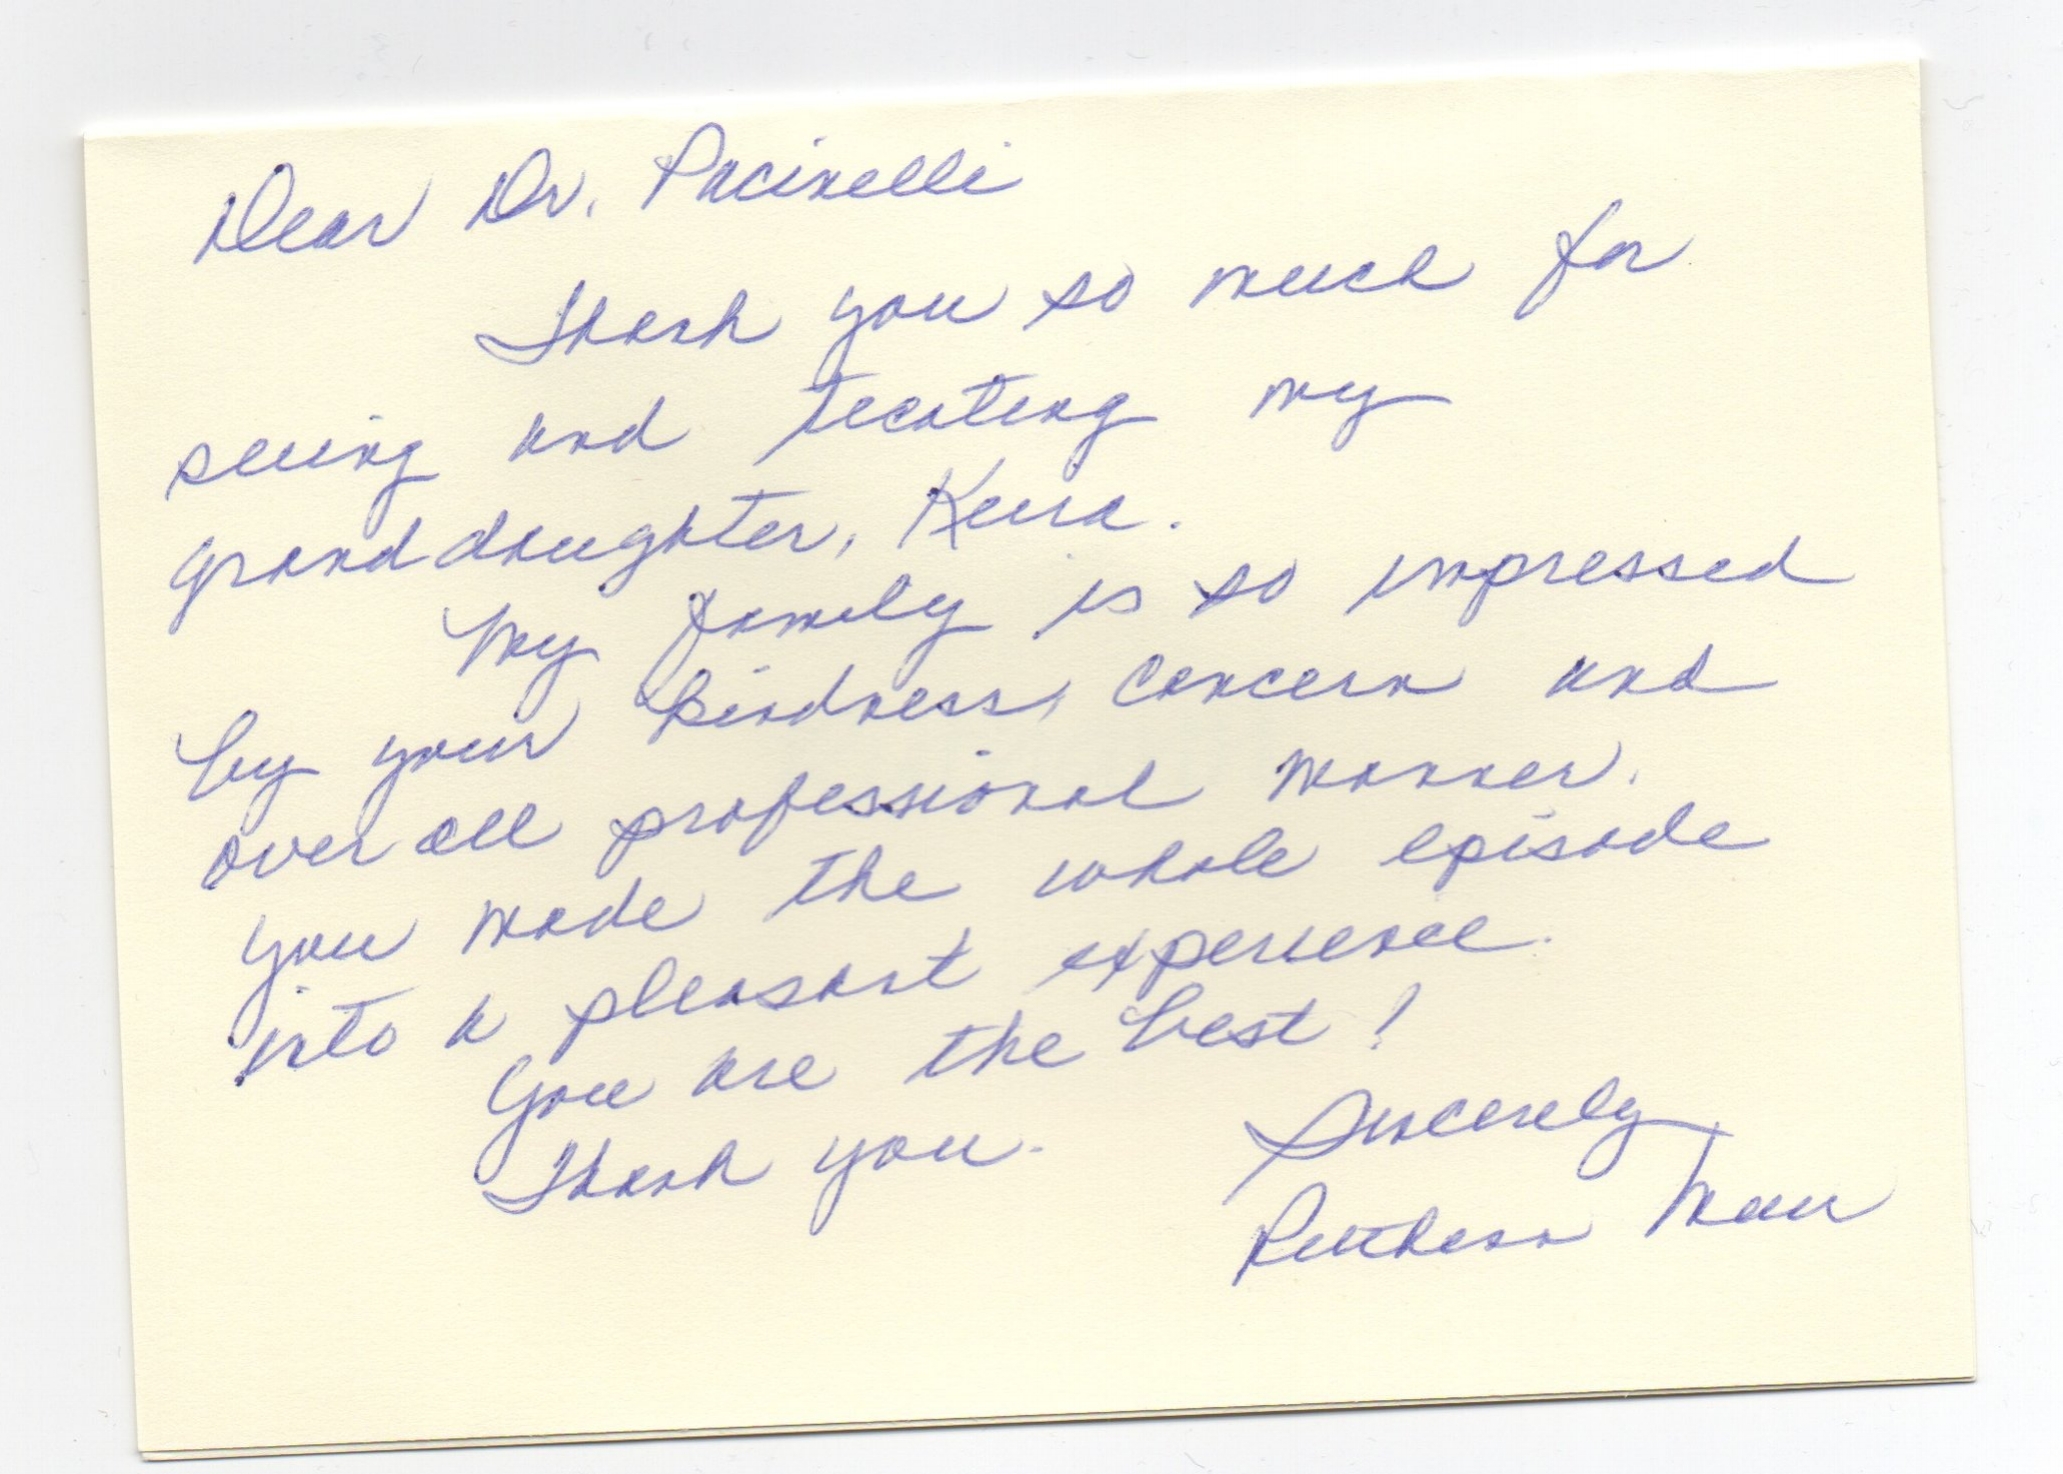 Dear Dr. Pacinelli
Thank you so much for
seeing and treating my
granddaughter, Keira.
My family is so impressed
by your kindness, concern and
over all professional manner.
you made the whole episode
into a pleasant experience.
You are the best!
Thank you.
Sincerely
Ruthann Maur